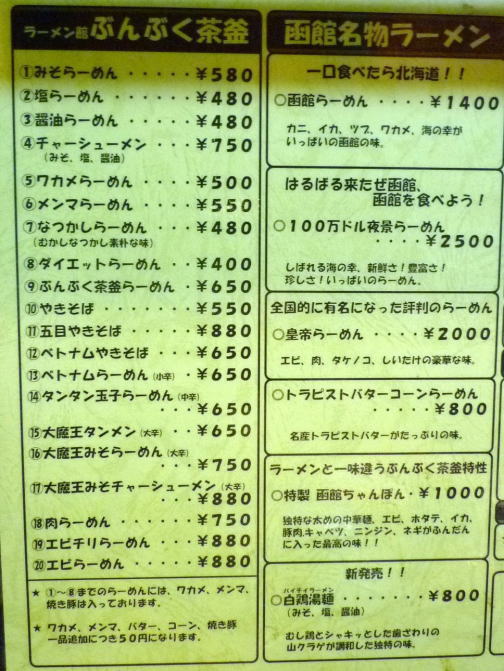 ラーメン館 ぶんぶく茶釜
①みそらーめん ・・・・・¥580
②塩らーめん ・・・・・・¥480
③醤油らーめん ・・・・・¥480
④チャーシューメン ・・・¥750
(みそ、塩、醤油)
⑤ワカメらーめん ・・・・¥500
⑥メンマらーめん ・・・・¥550
⑦なつかしらーめん ・・・¥480
(むかしなつかし素朴な味)
⑧ダイエットらーめん ・・¥400
⑨ぶんぶく茶釜らーめん ・¥650
⑩やきそば ・・・・・・・¥550
⑪五目やきそば ・・・・・¥880
⑫ベトナムやきそば ・・・¥650
⑬ベトナムらーめん(小辛)・¥650
⑭タンタン玉子らーめん(中辛)
・・・¥650
⑮大魔王タンメン(大辛)・・¥650
⑯大魔王みそらーめん(大辛)
・・・¥750
⑰大魔王みそチャーシューメン(大辛)
・・・¥880
⑱肉らーめん ・・・・・・¥750
⑲エビチリらーめん ・・・¥880
⑳エビらーめん ・・・・・¥880
★ ①〜⑧までのらーめんには、ワカメ、メンマ、
焼き豚は入っております。
★ ワカメ、メンマ、バター、コーン、焼き豚
一品追加につき50円になります。
函館名物ラーメン
一口食べたら北海道!!
○函館らーめん ・・・・¥1400
カニ、イカ、ツブ、ワカメ、海の幸が
いっぱいの函館の味。
はるばる来たぜ函館、
函館を食べよう!
○100万ドル夜景らーめん
・・・・¥2500
しばれる海の幸、新鮮さ!豊富さ!
珍しさ!いっぱいのらーめん。
全国的に有名になった評判のらーめん
○皇帝らーめん ・・・・¥2000
エビ、肉、タケノコ、しいたけの豪華な味。
○トラピストバターコーンらーめん
・・・・・¥800
名産トラピストバターがたっぷりの味。
ラーメンと一味違うぶんぶく茶釜特性
○特製 函館ちゃんぽん・¥1000
独特な太めの中華麺、エビ、ホタテ、イカ、
豚肉、キャベツ、ニンジン、ネギがふんだん
に入った最高の味!!
新発売!!
パイチイラーメン
○白鶏湯麺 ・・・・・・¥800
(みそ、塩、醤油)
むし鶏とシャキッとした歯ざわりの
山クラゲが調和した独特の味。